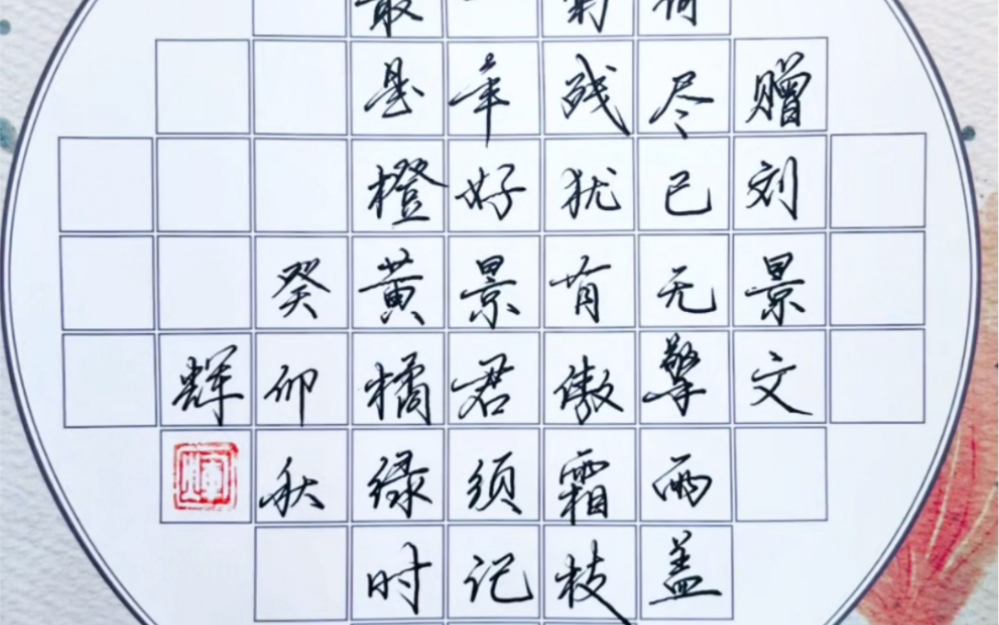 赠刘景文
荷尽已无擎雨盖
菊残犹有傲霜枝
一年好景君须记
最是橙黄橘绿时
癸卯秋
辉